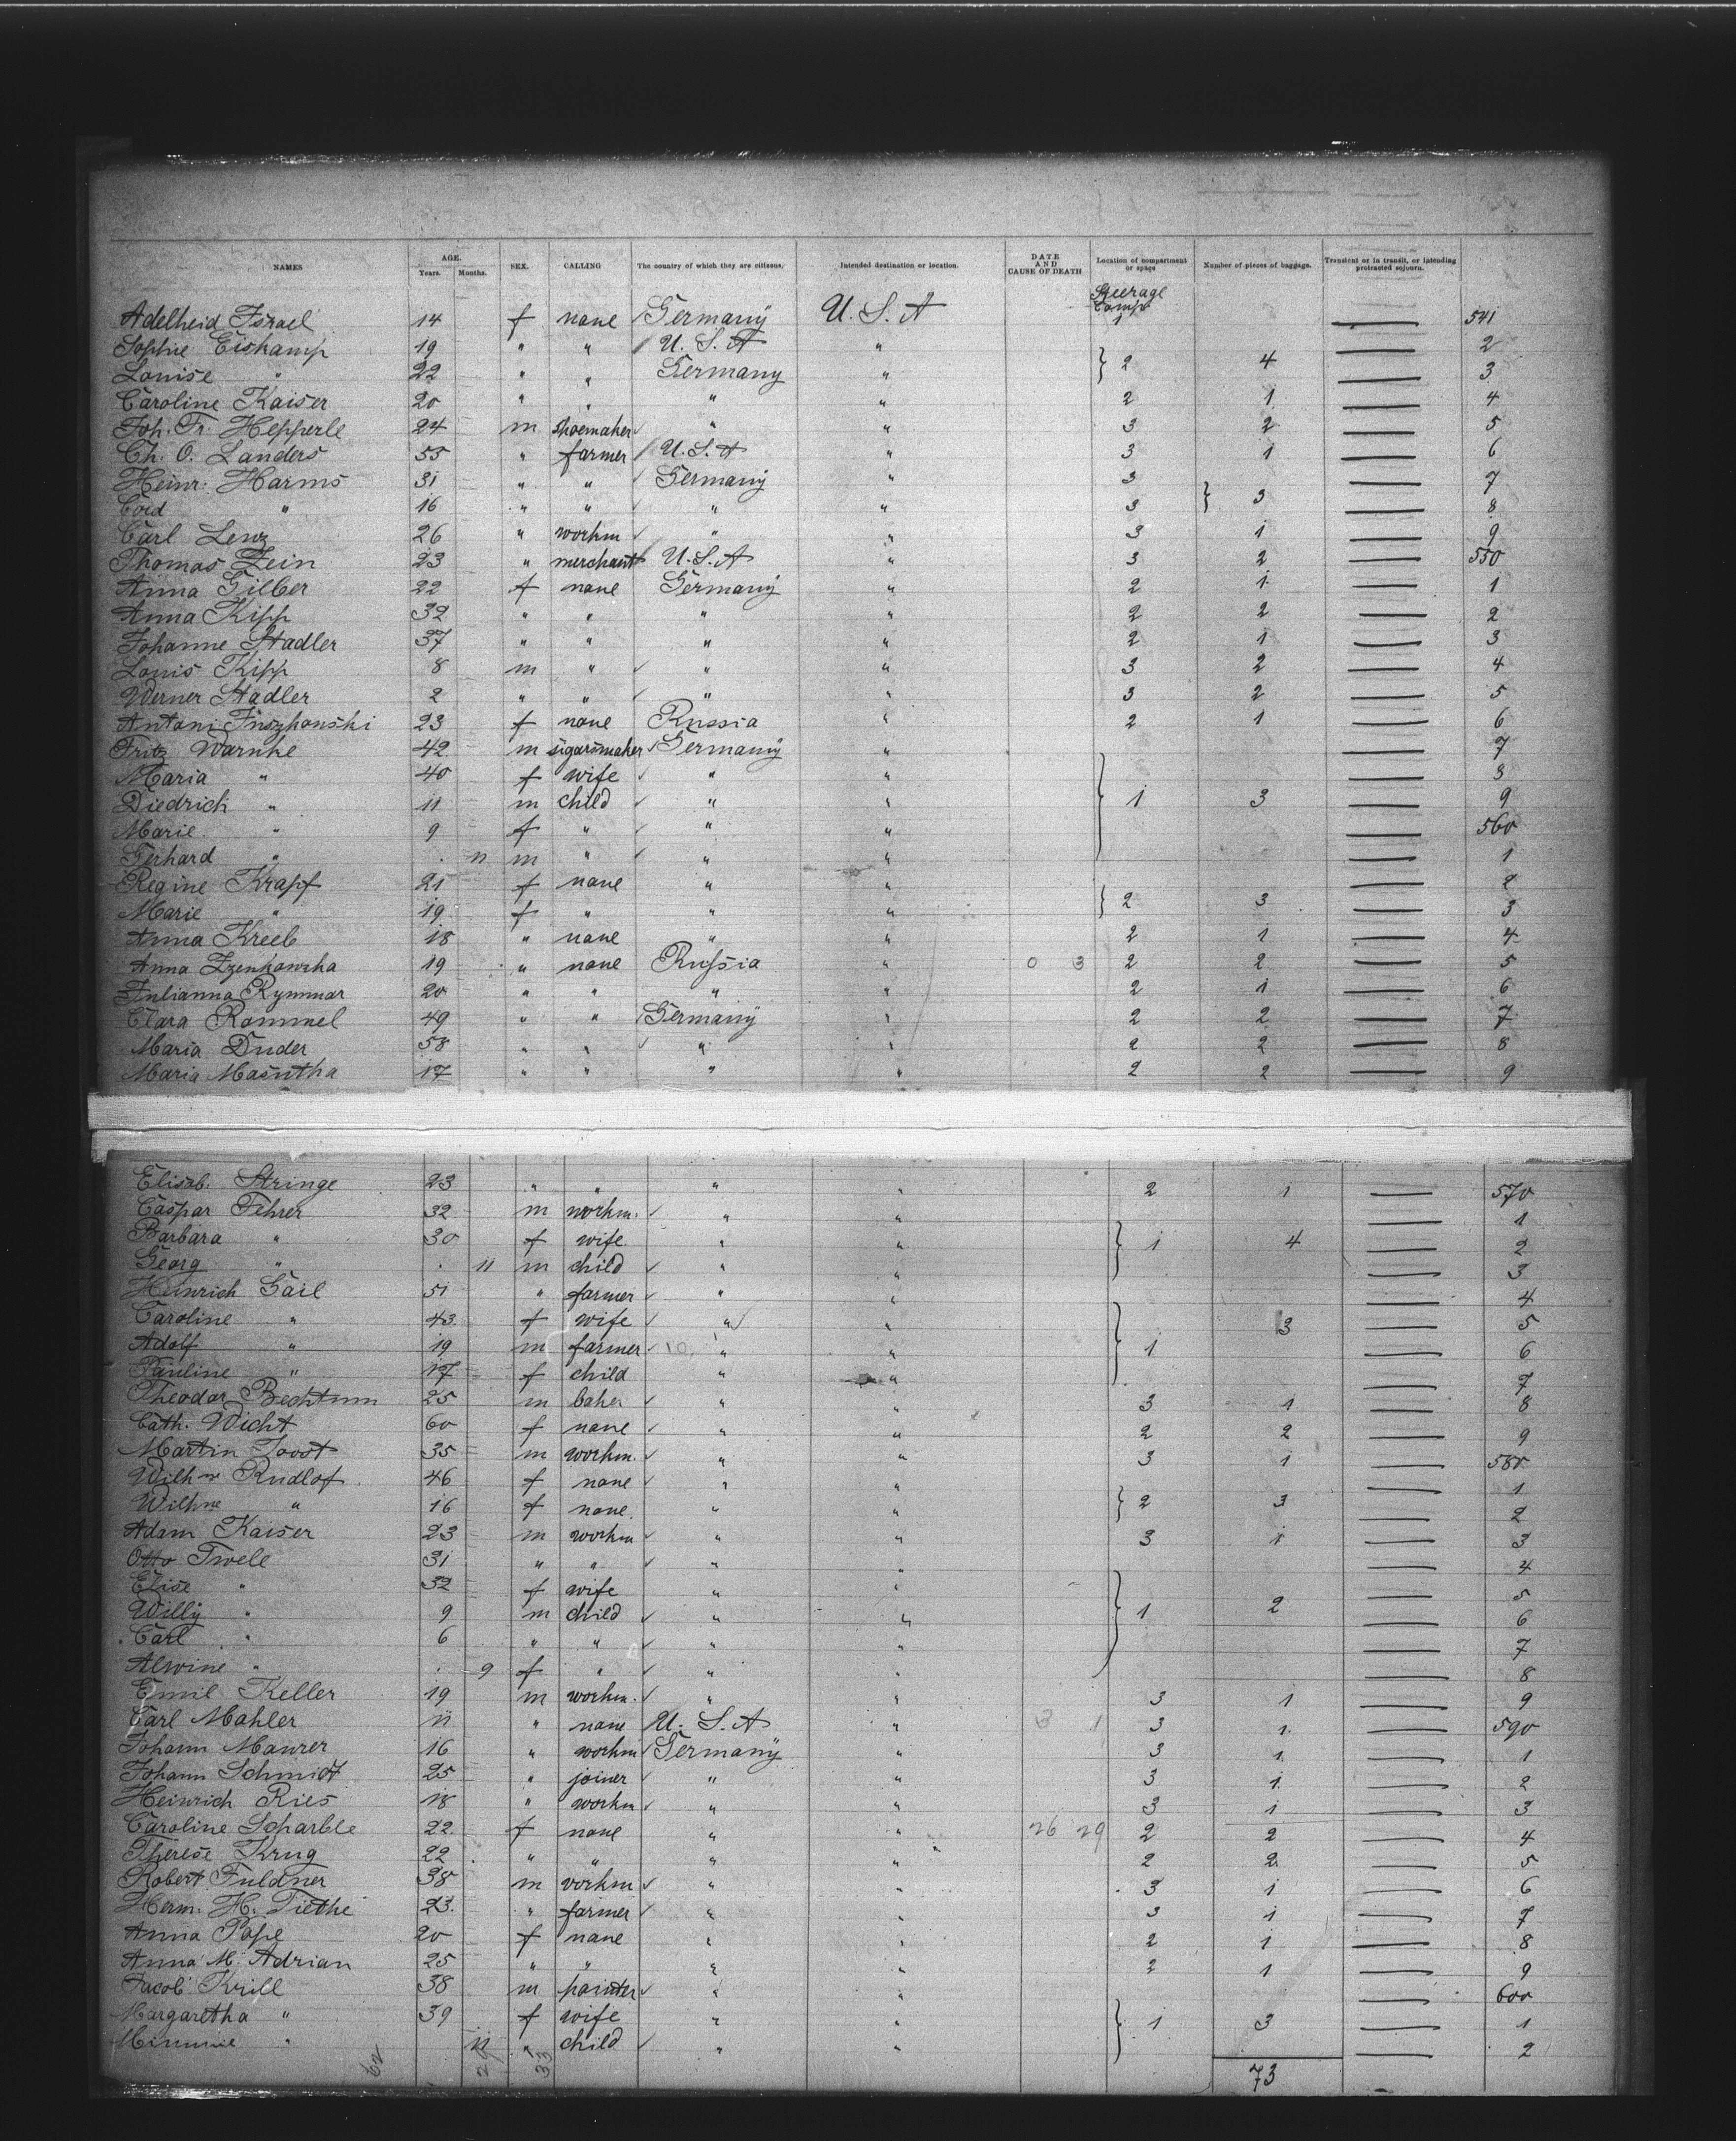 NAMES AGE. Years. Months. SEX. CALLING The country of which they are citizens. Intended destination or location. DATE AND CAUSE OF DEATH Location of compartment or space Number of pieces of baggage. Transient or in transit, or intending protracted sojourn.
Steerage Comp.
Adelheid Israel 14 f none Germany U.S.A 1 — 541
Sophie Eiskamp 19 " " U.S.A " — 2
Louise " 22 " " Germany " 2 4 — 3
Caroline Kaiser 20 " " " " 2 1 — 4
Joh. Fr. Hepperle 24 m shoemaker " " 3 2 — 5
Ch. O. Landers 55 " farmer U.S.A " 3 1 — 6
Heinr. Harms 31 " " Germany " 3 — 7
Cord " 16 " " " " 3 3 — 8
Carl Lenz 26 " workm " " 3 1 — 9
Thomas Zein 23 " merchant U.S.A " 3 2 — 550
Anna Gilber 22 f none Germany 2 1 — 1
Anna Kipp 32 " " " " 2 2 — 2
Johanne Stadler 37 " " " " 2 1 — 3
Louis Kipp 8 m " " " 3 2 — 4
Werner Stadler 2 " " " " 3 2 — 5
Antani 23 f none Russia " 2 1 — 6
Fritz Warnke 42 m sigarsmaker Germany " — 7
Maria " 40 f wife " " — 8
Diedrich " 11 m child " " 1 3 — 9
Marie " 9 f " " " — 560
Gerhard " . 11 m " " " — 1
Regine Krapf 21 f none " " — 2
Marie " 19 f " " " 2 3 — 3
Anna Kreeb 18 " none " " 2 1 — 4
Anna Izenkowska 19 " none Russia " 0 3 2 2 — 5
Julianna Rymmar 20 " " " " 2 1 — 6
Clara Rommel 49 " " Germany " 2 2 — 7
Maria Duder 58 " " " " 2 2 — 8
Maria Masutha 17 " " " " 2 2 — 9
Elisab. Stringe 23 " " " " 2 1 — 570
Caspar Fehrer 32 m workm. " " — 1
Barbara " 30 f wife " " 1 4 — 2
Georg " . 11 m child " " — 3
Heinrich Gail 51 " farmer " " — 4
Caroline " 43 f wife " " 3 — 5
Adolf " 19 m farmer " " 1 — 6
Pauline " 17 f child " " — 7
Theodor 25 m baker " " 3 1 — 8
Cath. Wicht 60 f none " " 2 2 — 9
Martin Joost 35 m workm. " " 3 1 — 580
Wilhne Rudlof 46 f none " " — 1
Wilhne " 16 f none " " 2 3 — 2
Adam Kaiser 23 m workm " " 3 1 — 3
Otto Twele 31 " " " " — 4
Elise " 32 f wife " " — 5
Willy " 9 m child " " 1 2 — 6
Carl " 6 " " " " — 7
Alwine " . 9 f " " " — 8
Emil Keller 19 m workm. " " 3 1 — 9
Carl Mahler 11 " none U.S.A " 3 1 3 1 — 590
Johann Maurer 16 " workm Germany " 3 1 — 1
Johann Schmidt 25 " joiner " " 3 1 — 2
Heinrich Ries 18 " workm " " 3 1 — 3
Caroline Scharble 22 f none " " 26 29 2 2 — 4
Therese Krug 22 " " " " 2 2 — 5
Robert Fuldner 38 m workm " " 3 1 — 6
Herm. H. Tiethe 23 " farmer " " 3 1 — 7
Anna Pape 20 f none " " 2 1 — 8
Anna M. Adrian 25 " " " " 2 1 — 9
Jacob Krill 38 m painter " " — 600
Margaretha " 39 f wife " " 1 3 — 1
Minnie " 11 " child " " — 2
62 29 33 73